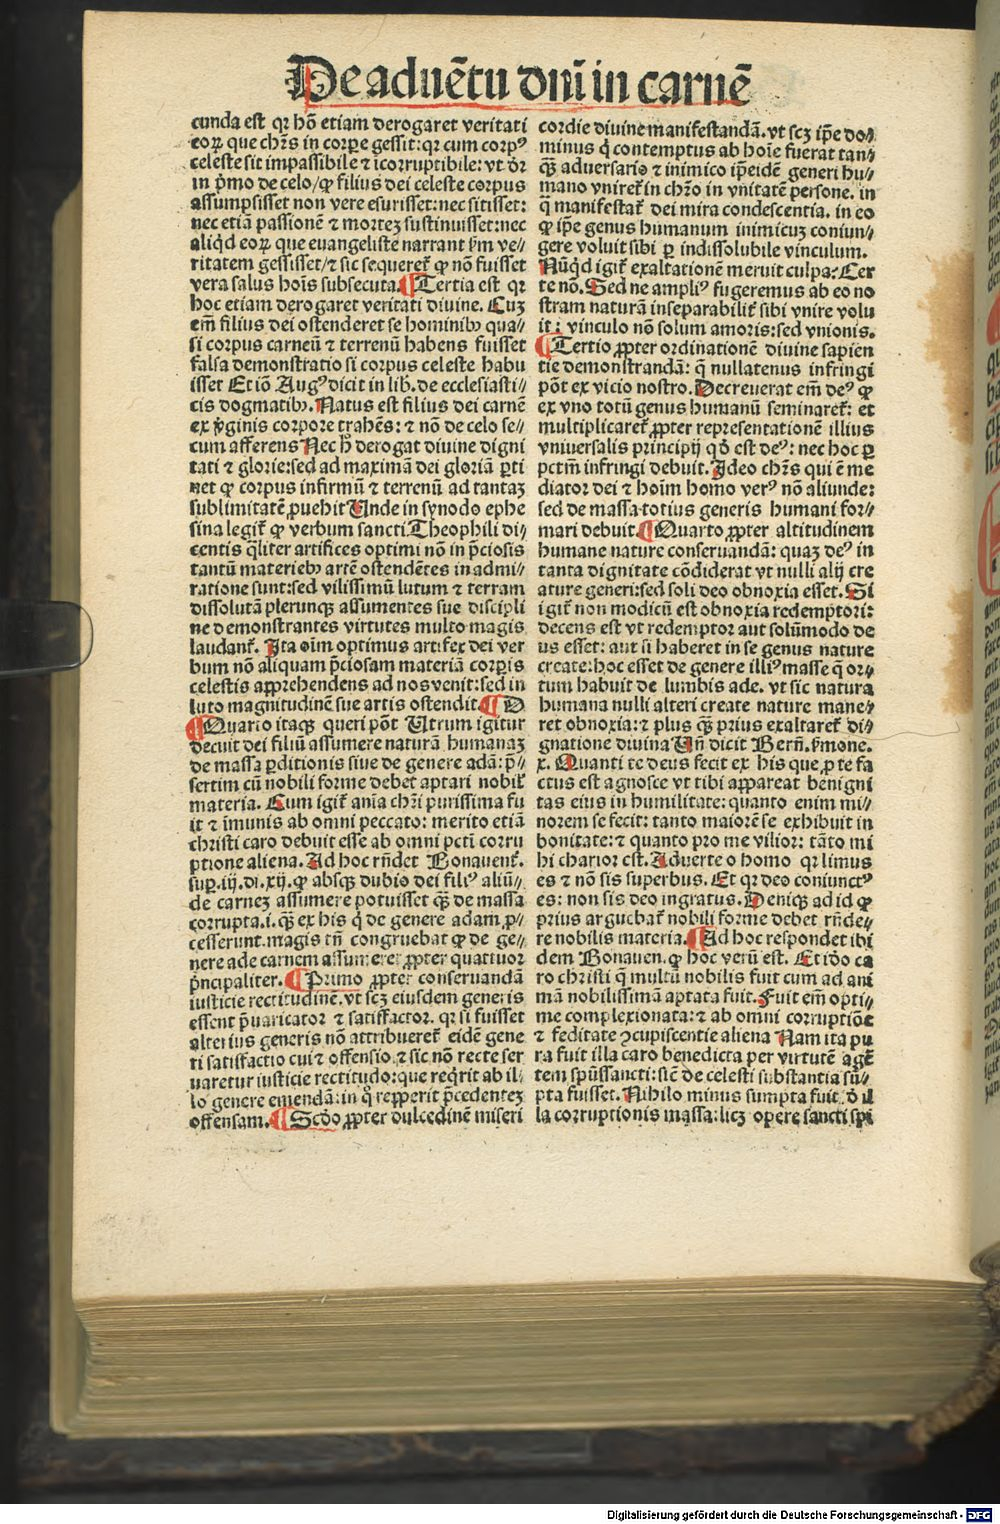 De aduētu dn̄i in carnē
cunda est qꝛ hō etiam derogaret veritati
eoꝝ que chr̄s in corꝑe gessit: qꝛ cum corpꝰ
celeste sit impassibile ⁊ icorruptibile: vt dr̄
in pͥmo de celo/ ꝙ filius dei celeste corpus
assumpsisset non vere esurisset: nec sitisset:
nec etiā passionē ⁊ mortez sustinuisset: nec
aliqͥd eoꝝ que euangeliste narrant ẜm ve⸗
ritatem gessisset/ ⁊ sic sequeret᷑ ꝙ nō fuisset
vera salus hoīs subsecuta. ¶ Tertia est qꝛ
hoc etiam derogaret veritati diuine. Cuz
em̄ filius dei ostenderet se hominibꝰ qua⸗
si corpus carneū ⁊ terrenū habens fuisset
falsa demonstratio si corpus celeste habu
isset Et iō Augꝰ dicit in lib. de ecclesiasti⸗
cis dogmatibꝰ. Natus est filius dei carnē
ex vͥginis corpore trahēs: ⁊ nō de celo se⸗
cum afferens Nec h̄ derogat diuine digni
tati ⁊ glorie: sed ad maximā dei gloriā ꝑti
net ꝙ corpus infirmū ⁊ terrenū ad tantaz
sublimitatē ꝓuehit Unde in synodo ephe
sina legit᷑ ꝙ verbum sancti Theophili di⸗
centis qͣliter artifices optimi nō in p̄ciosis
tantū materiebꝰ artē ostendētes in admi⸗
ratione sunt: sed vilissimū lutum ⁊ terram
dissolutā plerunqꝫ assumentes sue discipli
ne demonstrantes virtutes multo magis
laudant᷑. Ita oīm optimus artifex dei ver
bum nō aliquam p̄ciosam materiā corꝑis
celestis apprehendens ad nos venit: sed in
luto magnitudinē sue artis ostendit. ¶ D
¶ Quarto itaqꝫ queri pōt Utrum igitur
decuit dei filiū assumere naturā humanaz
de massa ꝑditionis siue de genere adā: p̄⸗
sertim cū nobili forme debet aptari nobil᷑
materia. Cum igit᷑ aīa chr̄i purissima fu
it ⁊ īmunis ab omni peccato: merito etiā
christi caro debuit esse ab omni pctī corru
ptione aliena. Ad hoc rn̄det Bonauent᷑.
suꝑ. iij. di. xij. ꝙ absqꝫ dubio dei filiꝰ aliū⸗
de carnez assumere potuisset qꝫ̄ de massa
corrupta. i. qꝫ̄ ex his qͥ de genere adam ꝓ⸗
cesserunt. magis tn̄ congruebat ꝙ de ge⸗
nere ade carnem assumeret ꝓpter quattuor
pͥncipaliter. ¶ Primo ꝓpter conseruandā
iusticie rectitudinē. vt scz eiusdem generis
essent p̄uaricator ⁊ satisfactor. qꝛ si fuisset
alterius generis nō attribueret᷑ eidē gene
ri satisfactio cui ⁊ offensio. ⁊ sic nō recte ser
uaretur iusticie rectitudo: que reqͥrit ab il⸗
lo genere emendā: in qͦ reꝑperit p̄cedentez
offensam. ¶ Scd̄o ꝓpter dulcedinē miseri
cordie diuine manifestandā. vt scz ip̄e do⸗
minus qͥ contemptus ab hoīe fuerat tan⸗
qꝫ̄ aduersario ⁊ inimico ip̄eidē generi hu⸗
mano vniret᷑ in chr̄o in vnitatē persone. in
q̄ manifestat᷑ dei mira condescentia. in eo
ꝙ ip̄e genus humanum inimicuz coniun⸗
gere voluit sibi ꝑ indissolubile vinculum.
Nūqͥd igit᷑ exaltationē meruit culpa: Cer
te nō. Sed ne ampliꝰ fugeremus ab eo no
stram naturā inseparabilit᷑ sibi vnire volu
it: vinculo nō solum amoris: sed vnionis.
¶ Tertio ꝓpter ordinationē diuine sapien
tie demonstrandā: q̄ nullatenus infringi
pōt ex vicio nostro. Decreuerat em̄ deꝰ ꝙ
ex vno totū genus humanū seminaret᷑: et
multiplicaret᷑ ꝓpter representationē illius
vniuersalis principij qd̓ est deꝰ: nec hoc ꝑ
pctm̄ infringi debuit. Ideo chr̄s qui ē me
diator dei ⁊ hoīm homo verꝰ nō aliunde:
sed de massa totius generis humani for⸗
mari debuit. ¶ Quarto ꝓpter altitudinem
humane nature conseruandā: quaz deꝰ in
tanta dignitate cōdiderat vt nulli alij cre
ature generi: sed soli deo obnoxia esset. Si
igit᷑ non modicū est obnoxia redemptori:
decens est vt redemptor aut solūmodo de
us esset: aut si haberet in se genus nature
create: hoc esset de genere illiꝰ masse q̄ or⸗
tum habuit de lumbis ade. vt sic natura
humana nulli alteri create nature mane⸗
ret obnoxia: ⁊ plus qꝫ̄ prius exaltaret᷑ di⸗
gnatione diuina Un̄ dicit Bern̄. ẜmone.
x. Quanti te deus fecit ex his que ꝓ te fa
ctus est agnosce vt tibi appareat benigni
tas eius in humilitate: quanto enim mi⸗
norem se fecit: tanto maiorē se exhibuit in
bonitate: ⁊ quanto pro me vilior: tāto mi
hi charior est. Aduerte o homo qꝛ limus
es ⁊ nō sis superbus. Et qꝛ deo coniunctꝰ
es: non sis deo ingratus. Deniqꝫ ad id ꝙ
prius arguebat᷑ nobili forme debet rn̄de⸗
re nobilis materia. ¶ Ad hoc respondet ibi
dem Bonauen. ꝙ hoc verū est. Et iō ca
ro christi q̄ multū nobilis fuit cum ad ani
mā nobilissimā aptata fuit. Fuit em̄ opti⸗
me complexionata: ⁊ ab omni corruptiōe
⁊ feditate ꝯcupiscentie aliena Nam ita pu
ra fuit illa caro benedicta per virtutē agē
tem sp̄ussancti: sic̄ de celesti substantia sū⸗
pta fuisset. Nihilo minus sumpta fuit. d̓ il
la corruptionis massa: licz opere sancti sp̄i
Digitalisierung gefördert durch die Deutsche Forschungsgemeinschaft - DFG